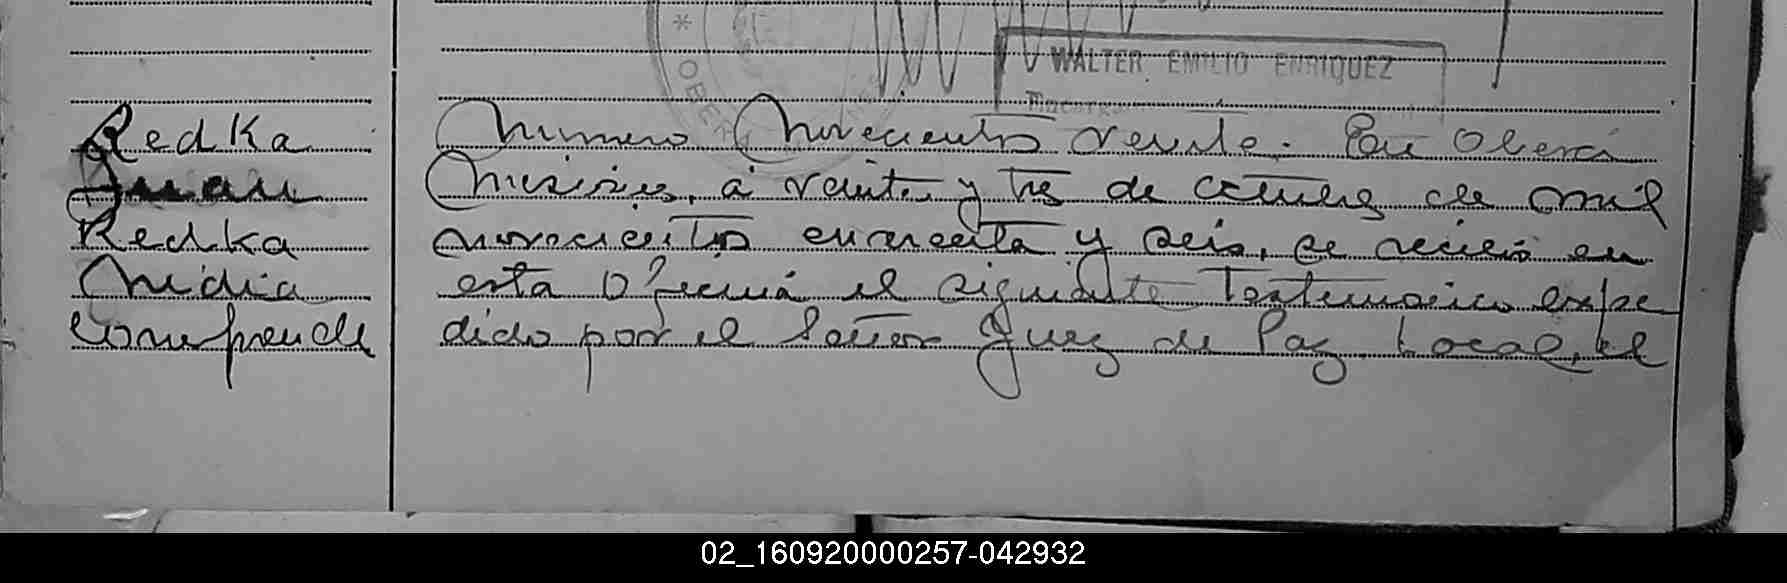 WALTER EMILIO ENRIQUEZ
OBERA
Redka
Juan
Redka
Nidia
comprende
Numero Novecientos veinte. En Oberá
Misiones, a veinte y tres de octubre de mil
novecientos cuarenta y seis, se recibió en
esta Oficina el siguiente Testimonio expe
dido por el Señor Juez de Paz Local, el
02_160920000257-042932